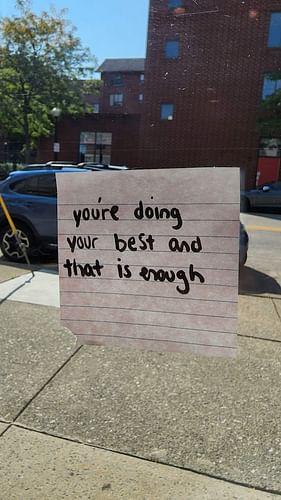 you're doing
your best and
that is enough